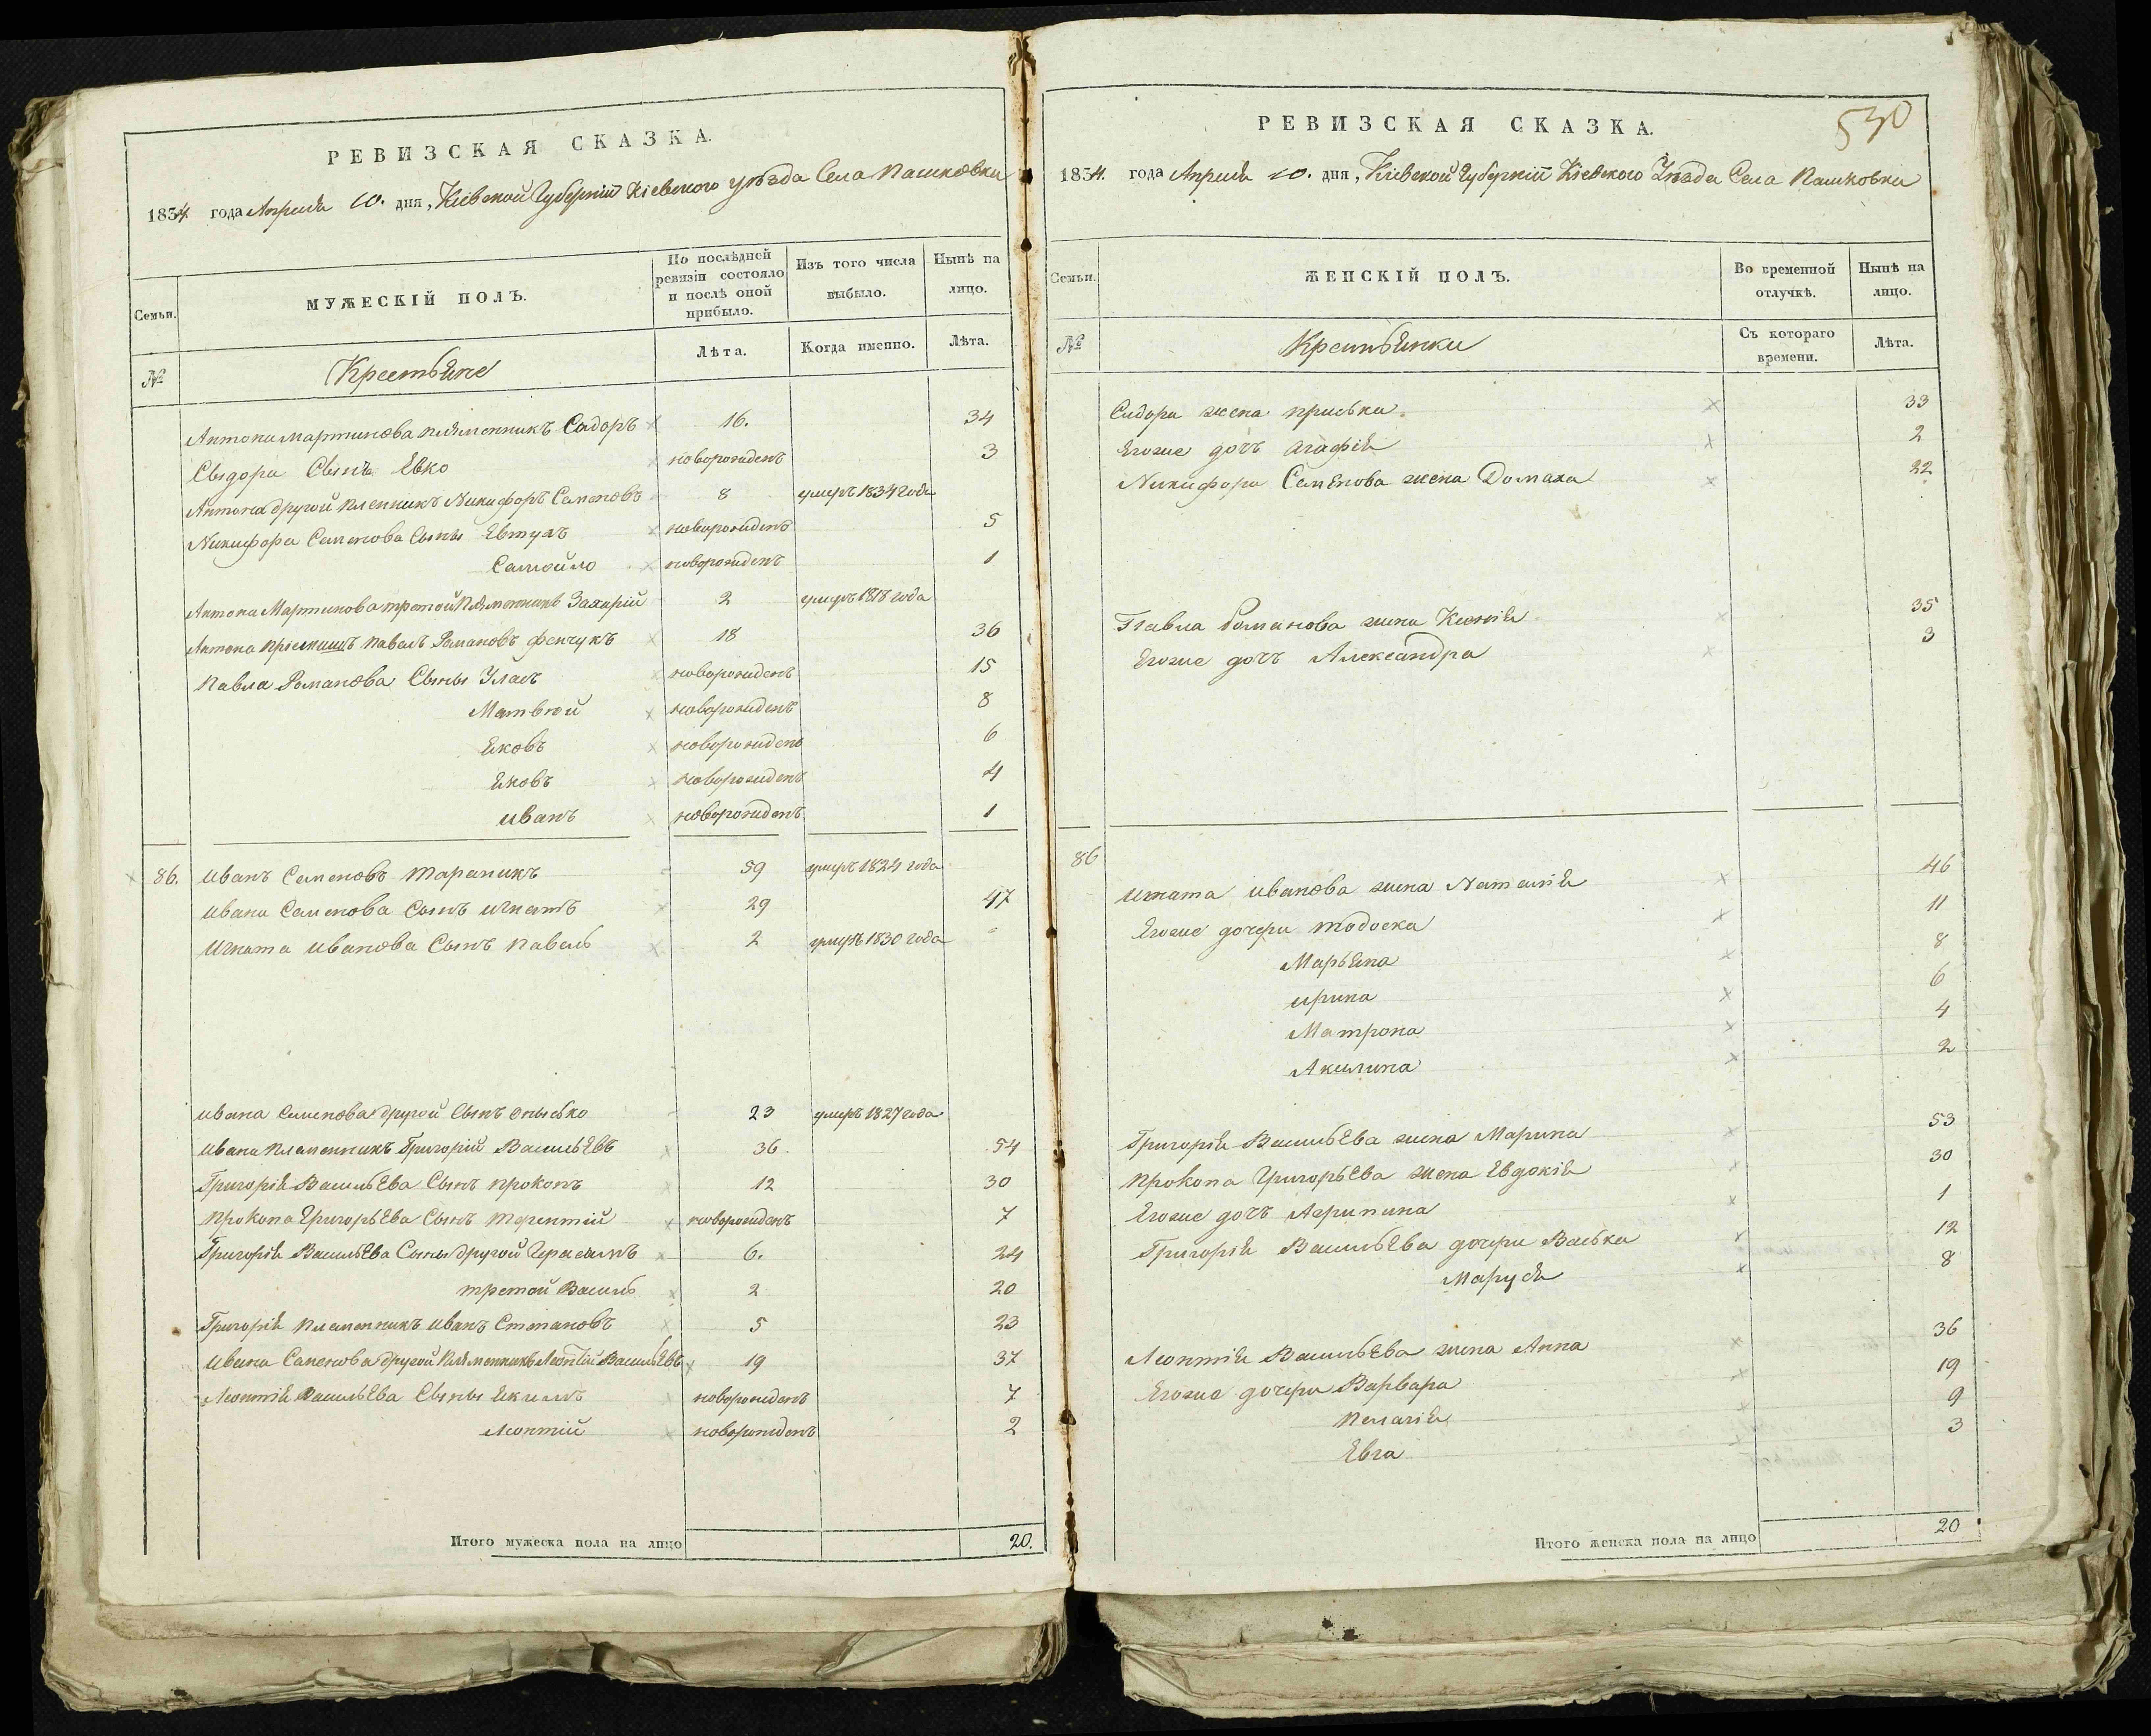 РЕВИЗСКАЯ СКАЗКА.
1834. года Апреля 10. дня, Кіевской Губерніи Кіевского уѣзда Села Пашковки
Семьи.
МУЖЕСКІЙ ПОЛЪ.
По послѣдней ревизіи состояло и послѣ оной прибыло.
Изъ того числа выбыло.
Нынѣ на лицо.
№
Крестьяне
Лѣта.
Когда именно.
Лѣта.
Антона Мартинова племенникъ Сидоръ 16. 34
Сыдора Сынъ Евко новорожденъ 3
Антона другой племникъ Никифоръ Семеновъ 8 умеръ 1834 года
Никифора Семенова Сыны Евтухъ новорожденъ 5
Самойло новорожденъ 1
Антона Мартинова третой племенникъ Захарій 2 умеръ 1818 года
Антона пріемышъ Павелъ Романовъ 18 36
Павла Романова Сыны Уласъ новорожденъ 15
Матвѣй новорожденъ 8
Яковъ новорожденъ 6
Яковъ новорожденъ 4
Иванъ новорожденъ 1
86. Иванъ Семеновъ Тараникъ 59 умеръ 1824 года
Ивана Семенова Сынъ Игнатъ 29 47
Игната Иванова Сынъ Павелъ 2 умеръ 1830 года
Ивана Семенова другой Сынъ Опысько 23 умеръ 1827 года
Ивана племенникъ Григорій Васильевъ 36. 54
Григорія Васильева Сынъ Прокопъ 12 30
Прокопа Григорьева Сынъ Терентій новорожденъ 7
Григорія Васильева Сыны другой Герасимъ 6. 24
третой Василь 2 20
Григорія племенникъ Иванъ Степановъ 5 23
Ивана Семенова другой племенникъ Леонтій Васильевъ 19 37
Леонтія Васильева Сыны Якимъ новорожденъ 7
Леонтій новорожденъ 2
Итого мужеска пола на лицо 20.
530
РЕВИЗСКАЯ СКАЗКА.
1834. года Апреля 10. дня, Кіевской Губерніи Кіевского Уѣзда Села Пашковки
Семьи.
ЖЕНСКІЙ ПОЛЪ.
Во временной отлучкѣ.
Нынѣ на лицо.
№
Крестьянки
Съ котораго времени.
Лѣта.
Сидора жена Приська 33
Егоже дочь Агафія 2
Никифора Семенова жена Домаха 32
Павла Романова жена Ксенія 35
Егоже дочь Александра 3
86
Игната Иванова жена Наталія 46
Егоже дочери Тодоска 11
Марьяна 8
Ирина 6
Матрона 4
Акилина 2
Григорія Васильева жена Марина 53
Прокопа Григорьева жена Евдокія 30
Егоже дочь Агрипина 1
Григорія Васильева дочери Васька 12
Маруся 8
Леонтія Васильева жена Анна 36
Егоже дочери Варвара 19
Пелагія 9
Евга 3
Итого женска пола на лицо 20